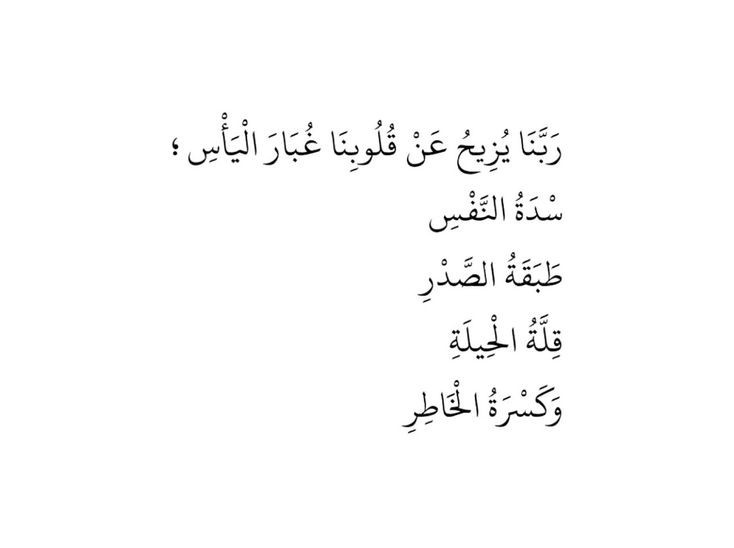 رَبَّنَا يُزِيحُ عَنْ قُلُوبِنَا غُبَارَ الْيَأْسِ ؛
سْدَةُ النَّفْسِ
طَبَقَةُ الصَّدْرِ
قِلَّةُ الْحِيلَةِ
وَكَسْرَةُ الْخَاطِرِ